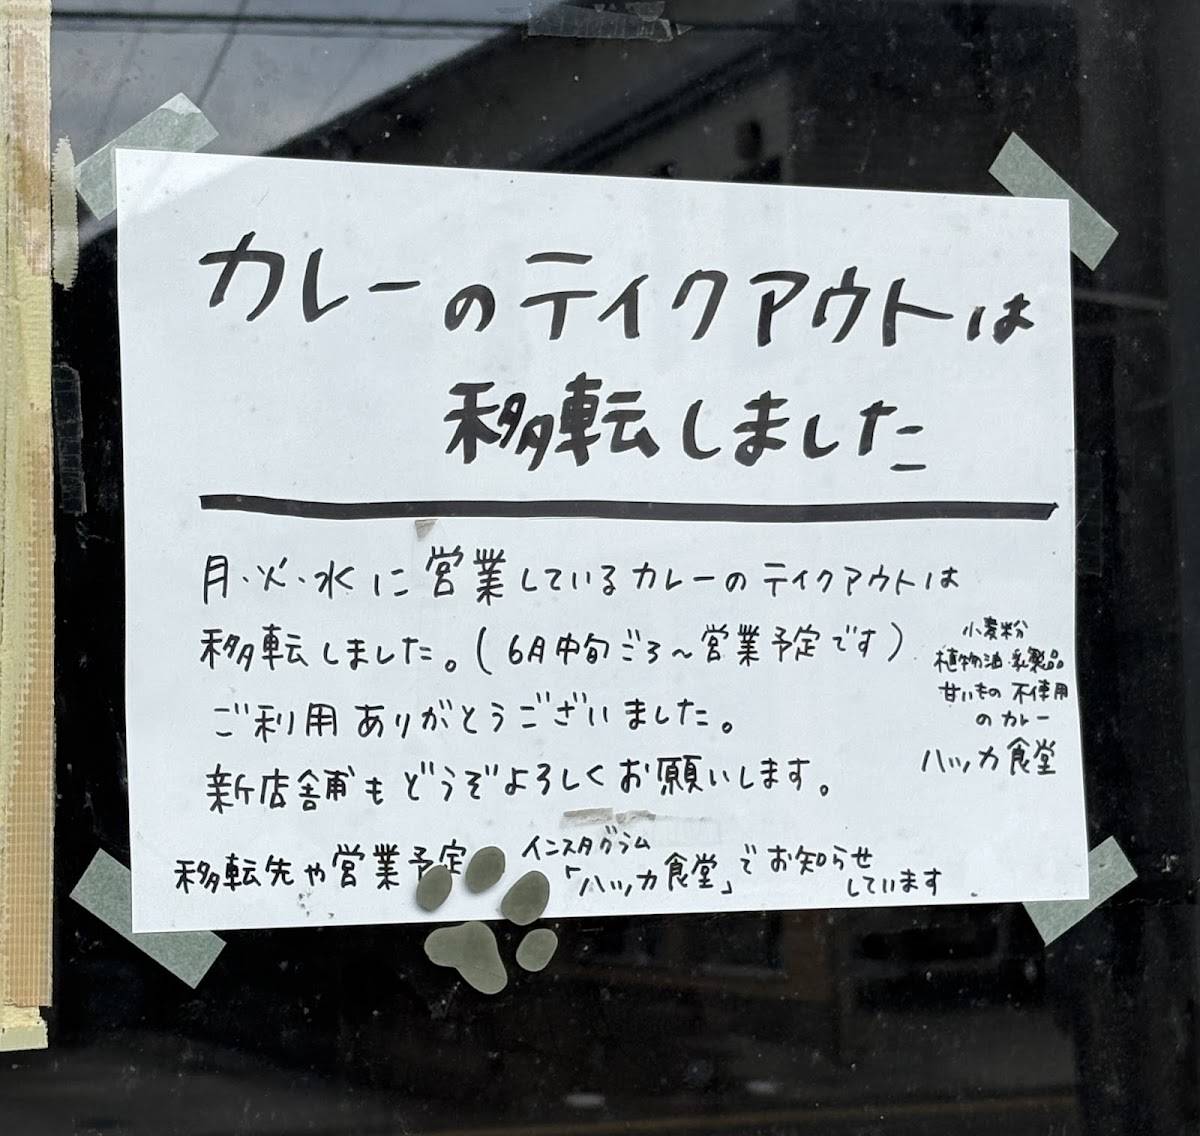 カレーのテイクアウトは
移転しました
月・火・水に営業しているカレーのテイクアウトは
移転しました。(6月中旬ごろ～営業予定です)
ご利用ありがとうございました。
新店舗もどうぞよろしくお願いします。
小麦粉
植物油・乳製品
甘いもの 不使用
のカレー
ハッカ食堂
移転先や営業予定
インスタグラム
「ハッカ食堂」でお知らせ
しています